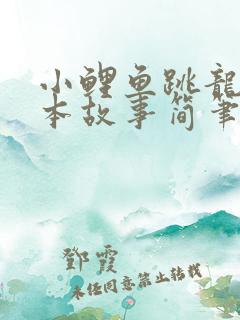 小鲤鱼跳龍
本故事简笔
鄧霞
未经同意禁止转载